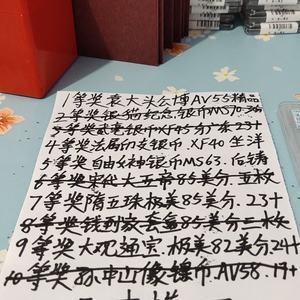 1等奖袁大头公博AV55精品
2等奖银猫纪念银币MS70.36
3等奖武毫银币XF45分厂末23+
4等奖法属印支银币.XF40坐洋
5等奖自由女神银币MS63.后铸
6等奖宋代大五帝85美分.五枚
7等奖隋五珠极美85分.23+
8等奖钱到家套盒85美分三枚
9等奖大观通宝.极美82美分24+
10等奖孙中山像镍币.AV58.19+